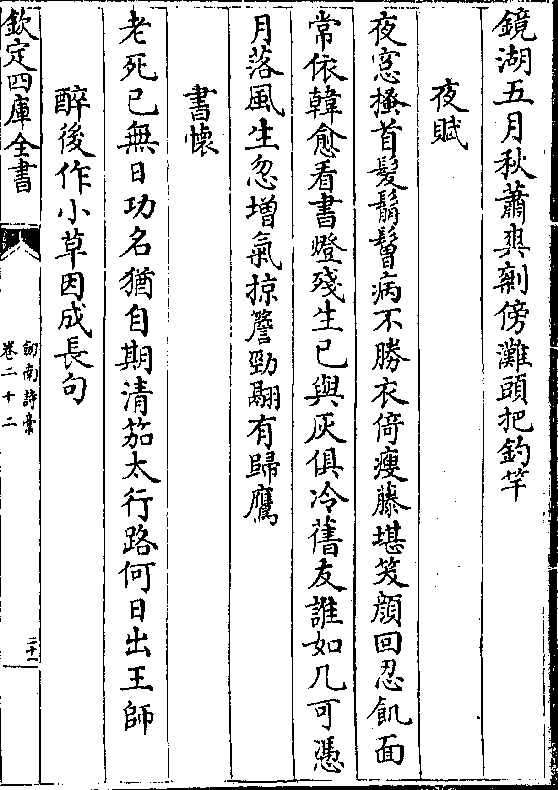 鏡湖五月秋蕭爽剰傍灘頭把釣竿
夜賦
夜窓搔首髮鬅鬙病不勝衣倚瘦藤堪笑顔回忍飢面
常依韓愈看書燈殘生已與灰俱冷舊友誰如几可憑
月落風生忽增氣掠簷勁翮有歸鷹
書懷
老死已無日功名猶自期清笳太行路何日出王師
醉後作小草因成長句
欽定四庫全書
劒南詩稾
卷二十二
二十一